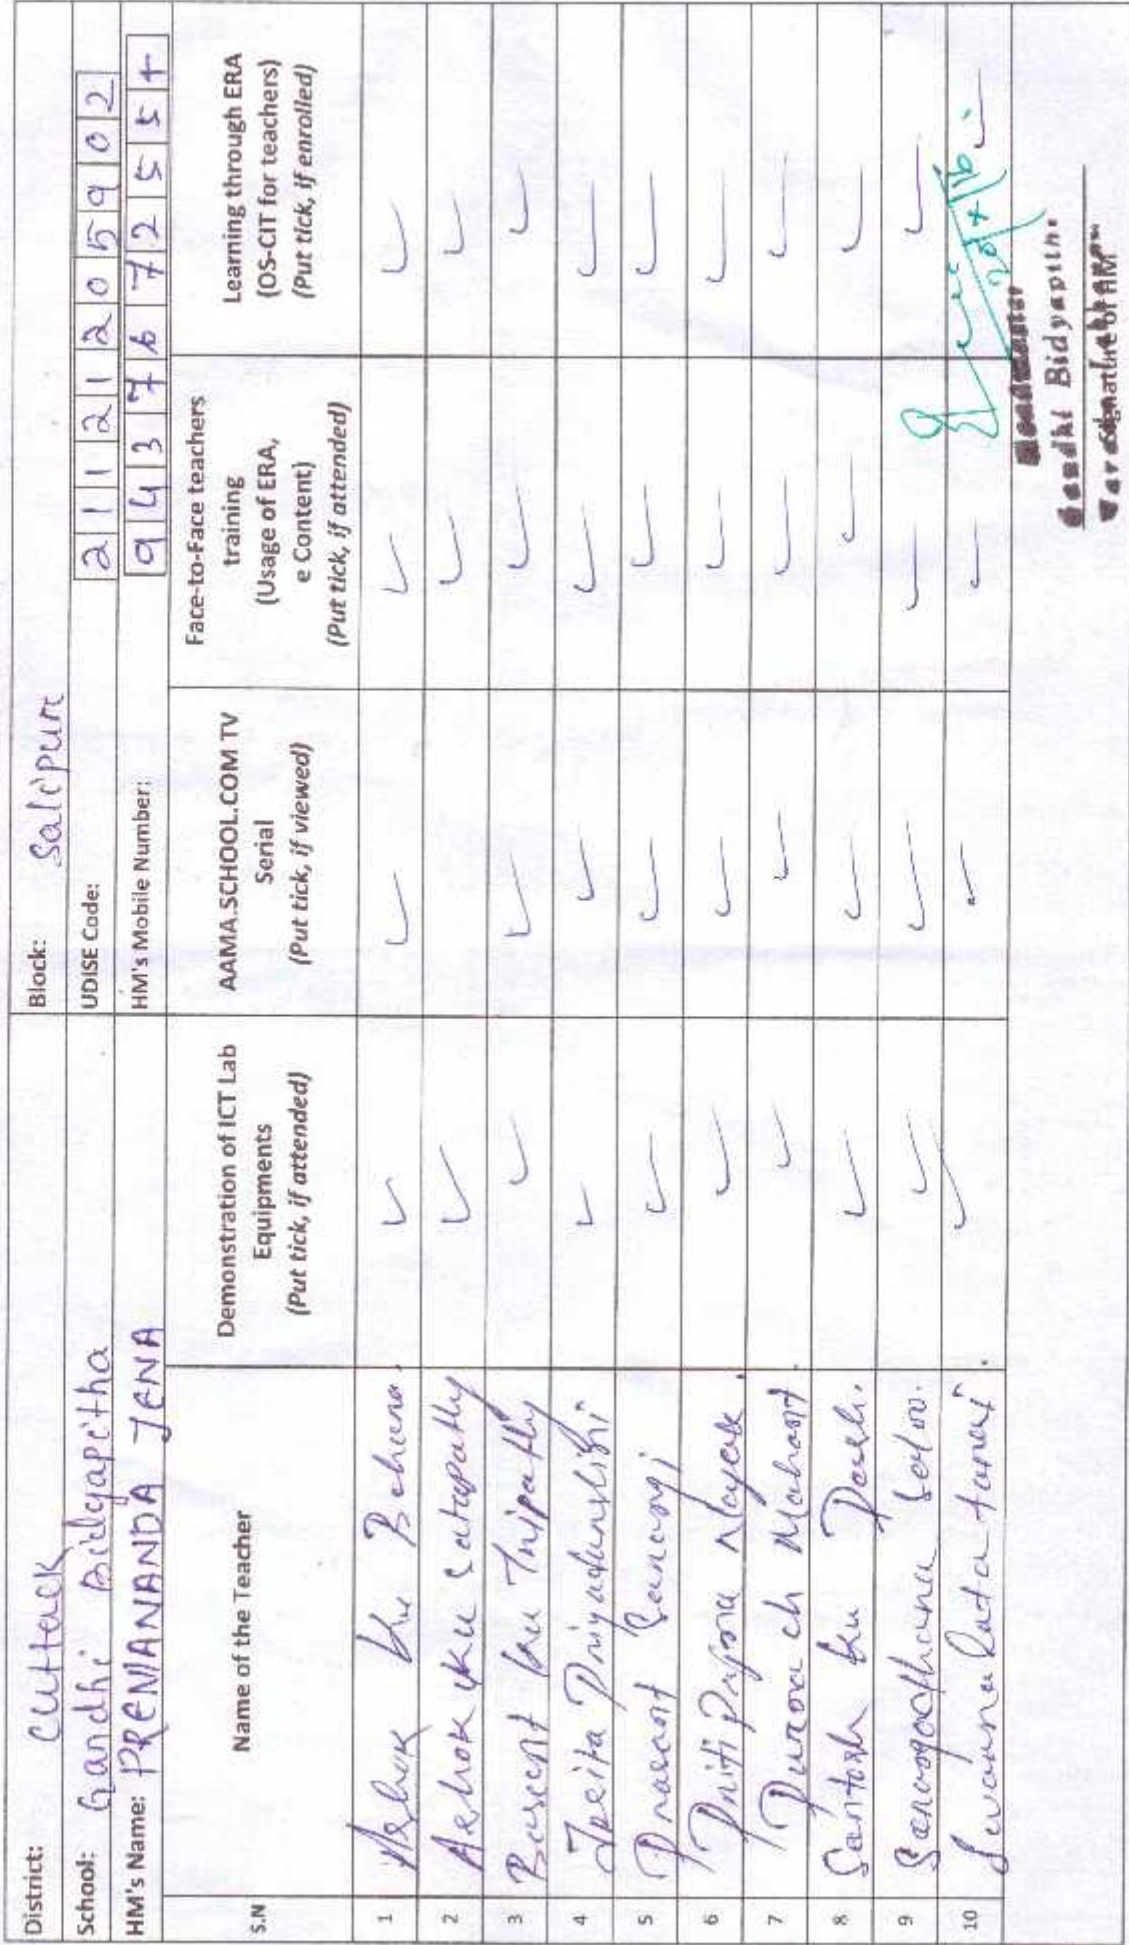 District: Cuttack Block: Salipur
School: Gandhi Bidyapitha UDISE Code: 21121205902
HM's Name: PREMANANDA JENA HM's Mobile Number: 9437672557
S.N Name of the Teacher Demonstration of ICT Lab Equipments (Put tick, if attended) AAMA.SCHOOL.COM TV Serial (Put tick, if viewed) Face-to-Face teachers training (Usage of ERA, e Content) (Put tick, if attended) Learning through ERA (OS-CIT for teachers) (Put tick, if enrolled)
1 Ashok Ku Behera. ✓ ✓ ✓ ✓
2 Ashok Ku Satapathy ✓ ✓ ✓
3 Basant Ku Tripathy ✓ ✓ ✓ ✓
4 Priyadarshini ✓ ✓ ✓ ✓
5 Prasant Sarangi ✓ ✓ ✓ ✓
6 Priti Priya Nayak ✓ ✓ ✓ ✓
7 ch Mahant ✓ ✓ ✓ ✓
8 Santosh Ku Dash. ✓ ✓ ✓ ✓
9 Sahoo. ✓ ✓ ✓ ✓
10 Lata ✓ ✓ ✓ ✓
Gandhi Bidyapitha
Signature of HM